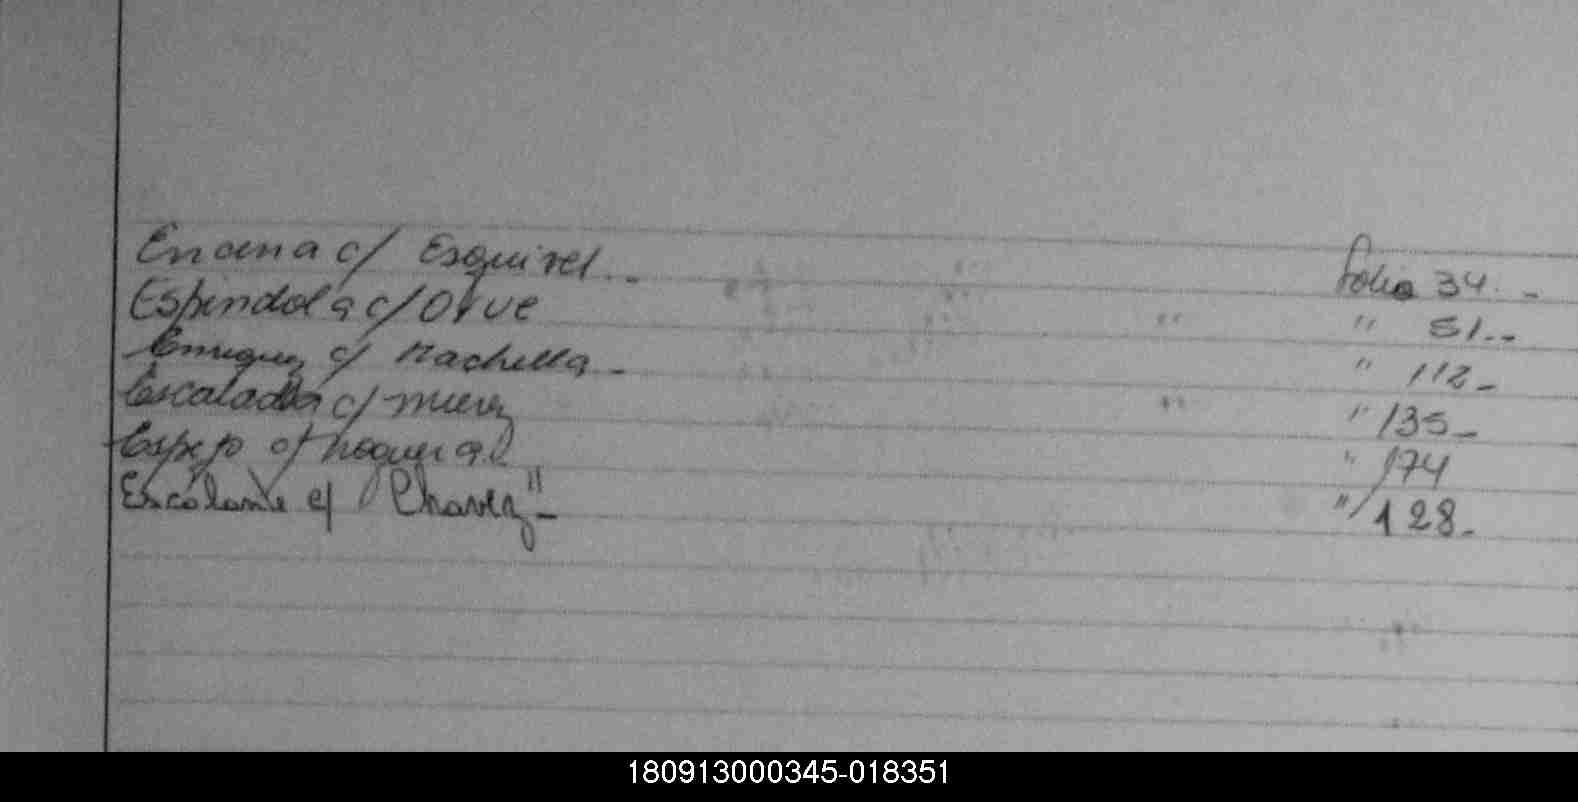 Encina c/ Esquivel.. folio 34. -
Espindola c/ Orue " " 51.--
Enriquez c/ Machella - " 112 -
Escalada c/ " " 135 -
Espejo c/ Noguera " 174
Escalante c/ Chavez" - " 128 -
180913000345-018351